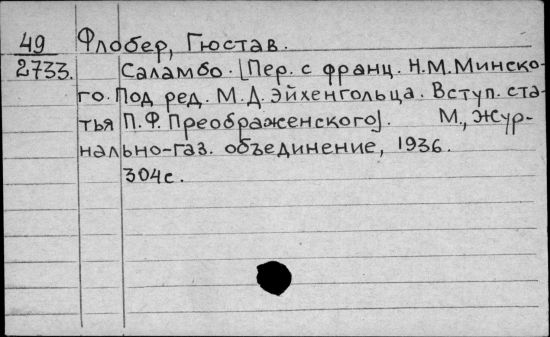 49 Флобер, Гюстав.
2733. Саламбо. [Пер. с франц. Н.М.Минско-
го. Под ред. М.Д.Эйхенгольца. Вступ. ста-
тья П.Ф.Преображенского]. М., Жур-
нально-газ. объединение, 1936.
304с.